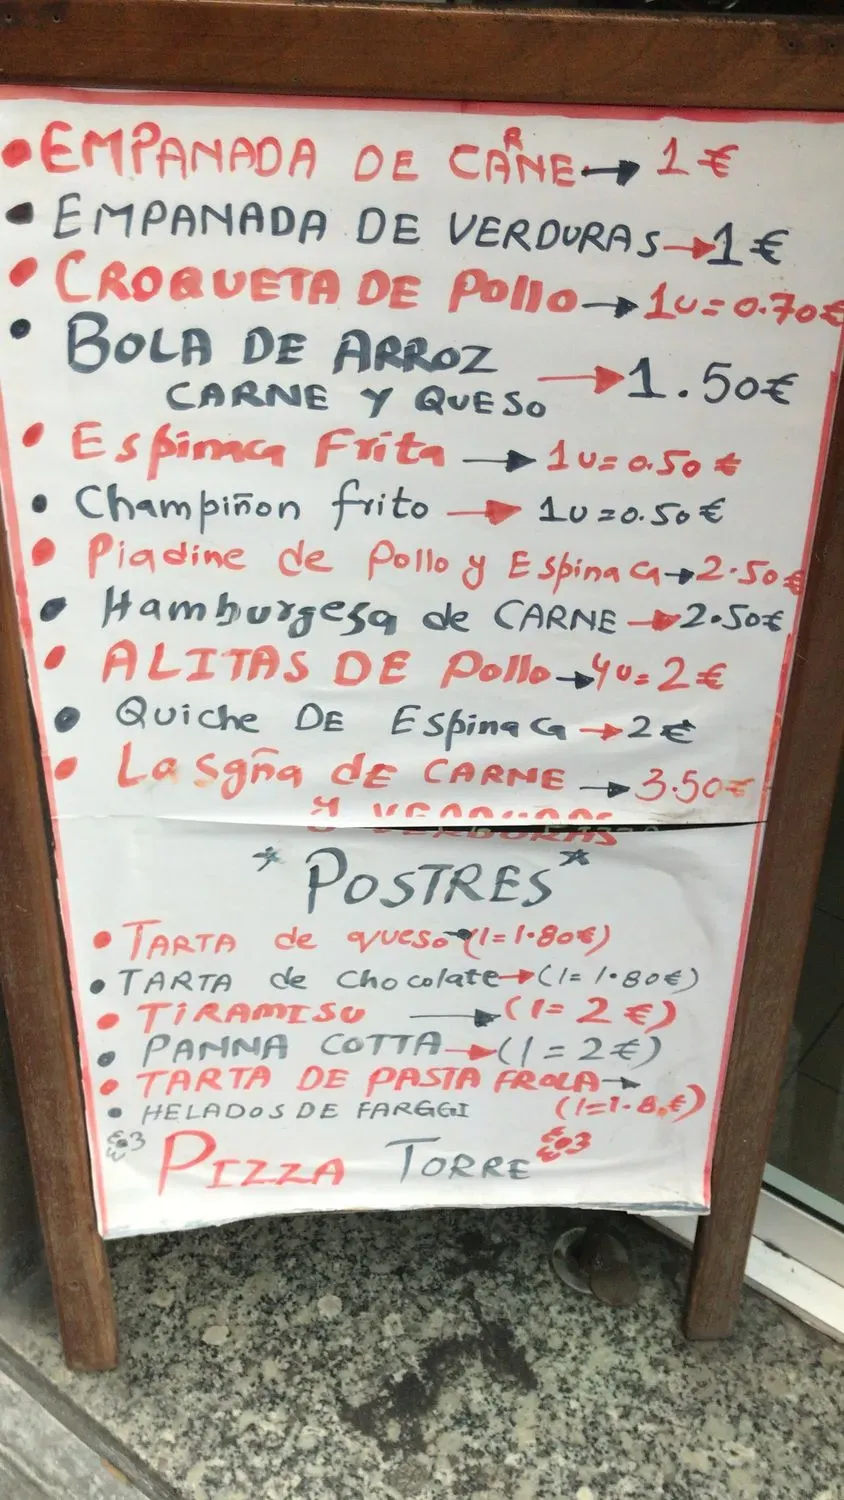 EMPANADA DE CARNE → 1 €
EMPANADA DE VERDURAS → 1 €
CROQUETA DE Pollo → 1u = 0.70€
BOLA DE ARROZ
CARNE Y QUESO → 1.50€
Espinaca Frita → 1u = 0.50 €
Champiñon frito → 1u = 0.50€
Piadine de Pollo y Espinaca → 2.50€
Hamburgesa de CARNE → 2.50€
ALITAS DE Pollo → 4u = 2€
Quiche DE Espinaca → 2€
Lasgña dE CARNE → 3.50€
y VERDURAS
* POSTRES *
TARTA de queso → (1 = 1.80€)
TARTA de Chocolate → (1 = 1.80€)
TiRAMISU → (1 = 2 €)
PANNA COTTA → (1 = 2€)
TARTA DE PASTA FROLA →
HELADOS DE FARGGI (1=1.8.€)
PIZZA TORRE